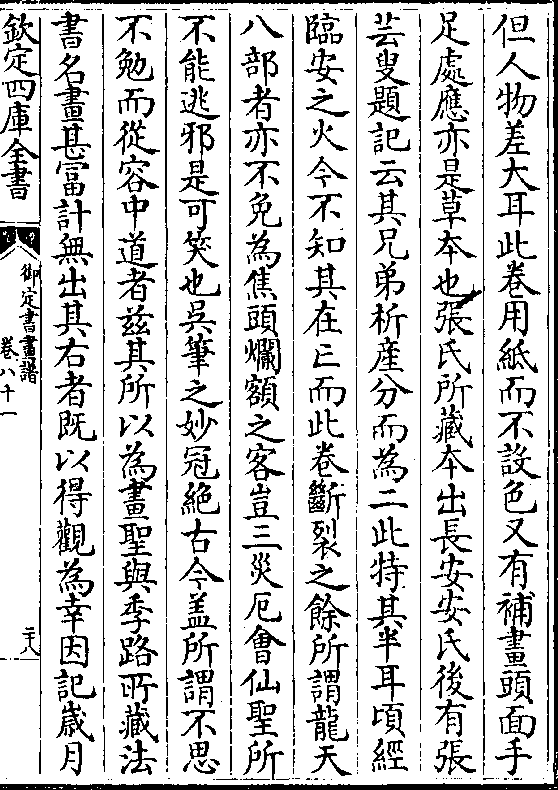 但人物差大耳此卷用紙而不設色又有補畫頭面手
足處應亦是草本也張氏所藏本出長安安氏後有張
芸叟題記云其兄弟析產分而為二此特其半耳頃經
臨安之火今不知其在亡而此卷斷裂之餘所謂龍天
八部者亦不免為焦頭爛額之客豈三災厄會仙聖所
不能逃邪是可笑也吳筆之妙冠絶古今盖所謂不思
不勉而從容中道者兹其所以為畫聖與季路所藏法
書名畫甚富計無出其右者既以得觀為幸因記嵗月
欽定四庫全書
御定書畫譜
卷八十一
二十八